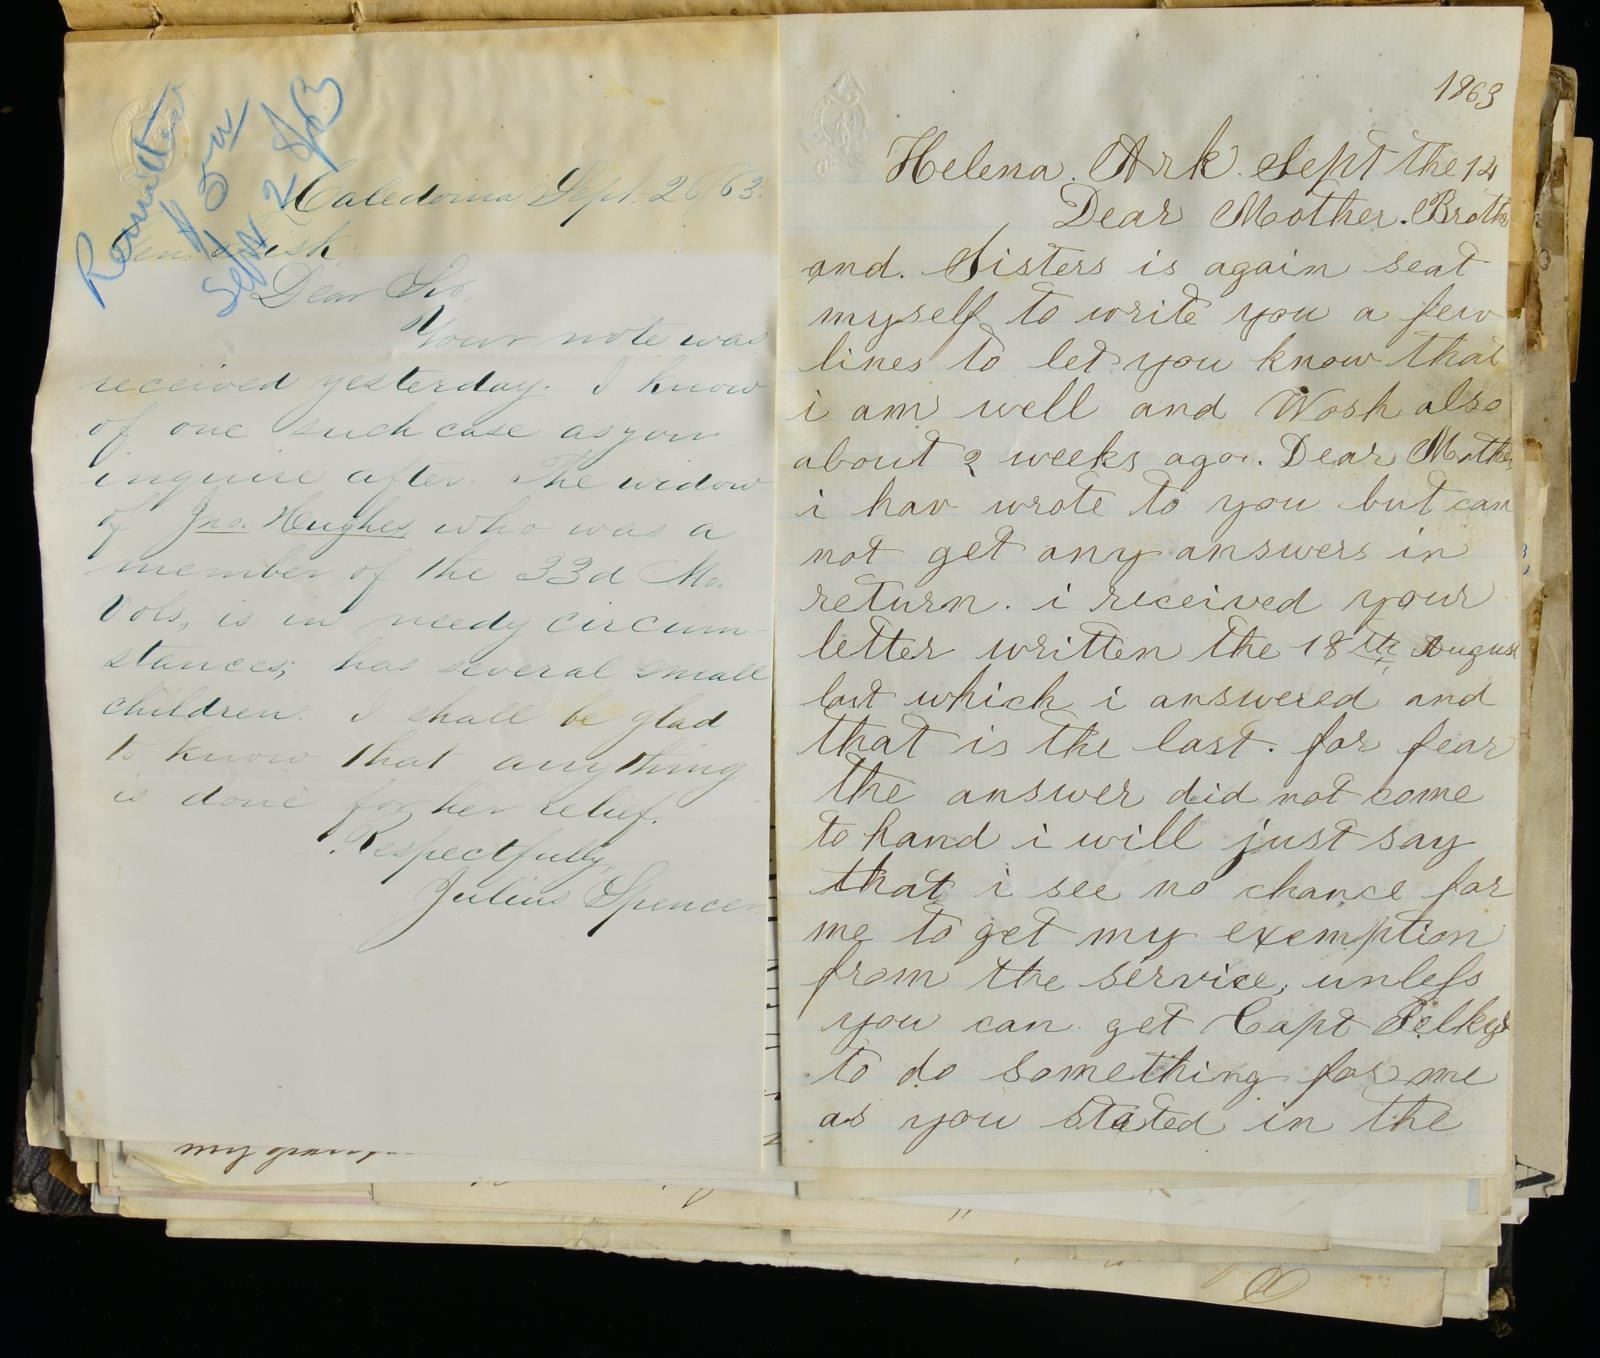 Remitted
$ 5
Sept 28/63
Caledonia Sept. 26/63.
Gen. Fisk,
Dear Sir,
Your note was
received yesterday. I know
of one such case as you
inquire after. The widow
of Jno. Hughes, who was a
member of the 33d Mo.
Vols, is in needy circum-
stances; has several small
children. I shall be glad
to know that anything
is done for her relief.
Respectfully,
Julius Spencer
my
1863
Helena. Ark. Sept the 14
Dear Mother. Broth
and. Sisters is again seat
myself to write you a few
lines to let you know that
i am well and Wash also
about 2 weeks ago. Dear Mother
i hav wrote to you but can
not get any answers in
return. i received your
letter written the 18th August
last which i answered and
that is the last. for fear
the answer did not come
to hand i will just say
that i see no chance for
me to get my exemption
from the service, unless
you can get Capt
to do something for me
as you stated in the